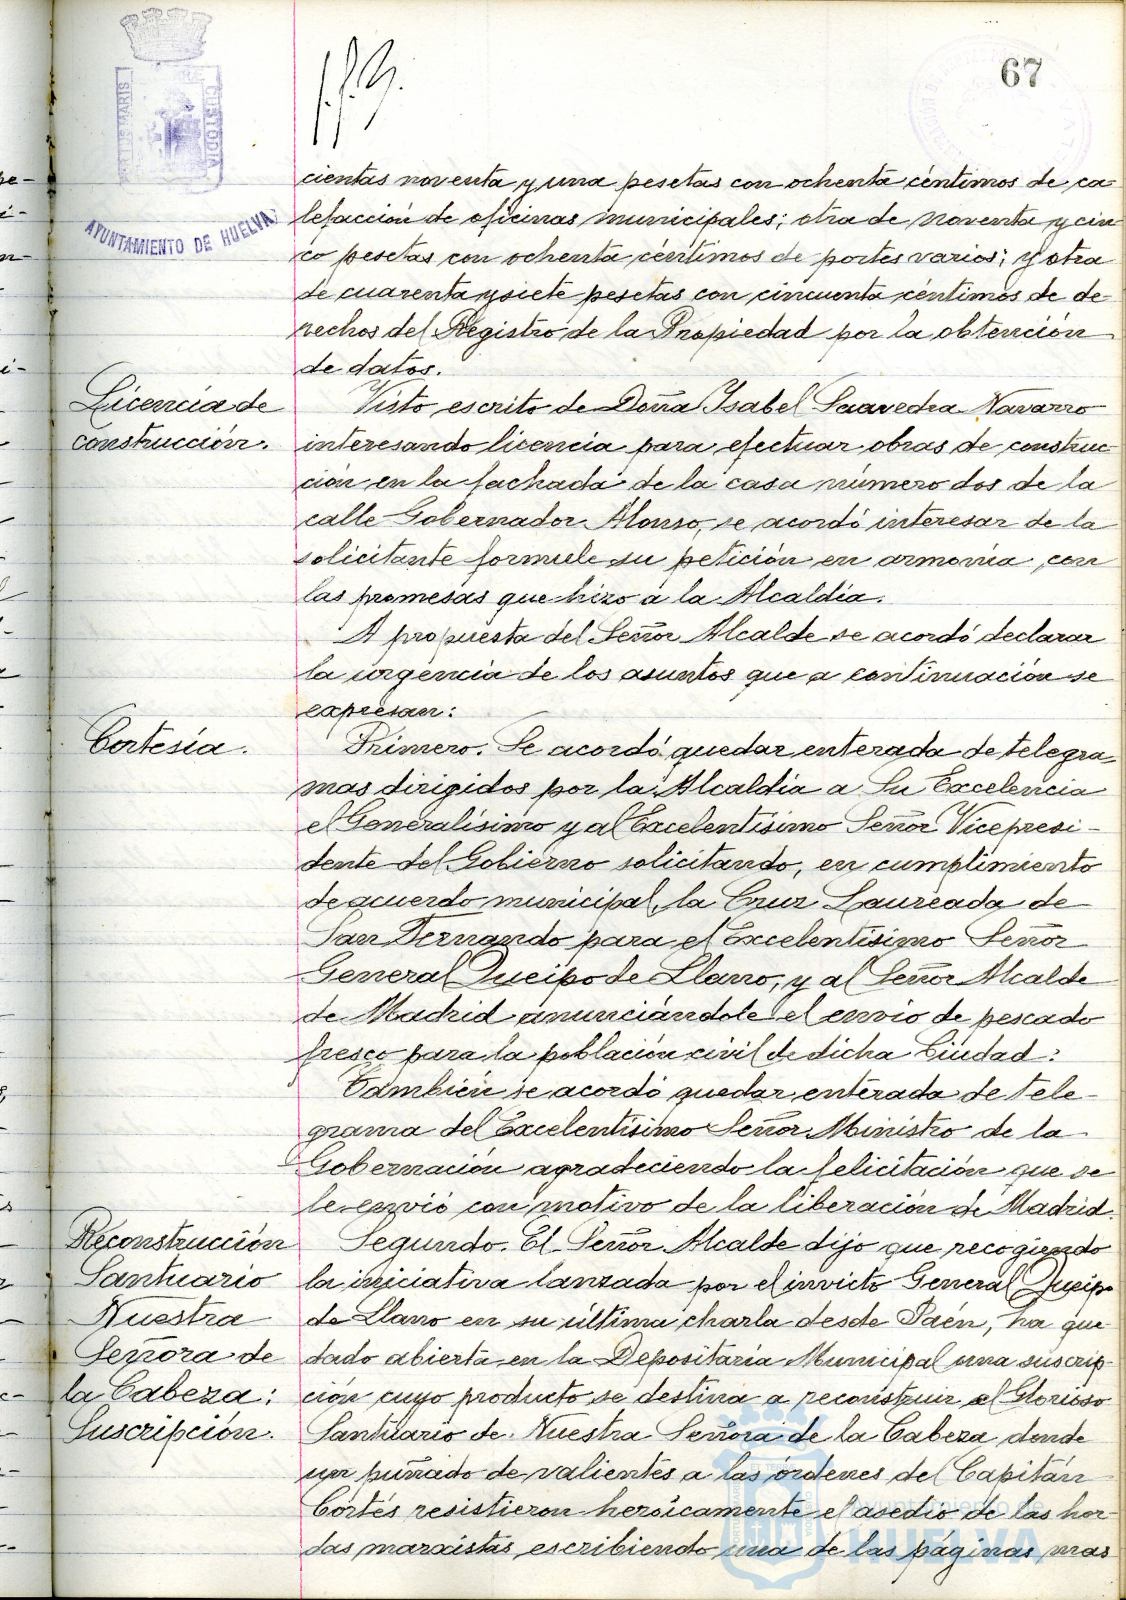 67
PORTUS MARIS
CUSTODIA
AYUNTAMIENTO DE HUELVA
cientas noventa y una pesetas con ochenta céntimos de ca-
lefacción de oficinas municipales; otra de noventa y cin
co pesetas con ochenta céntimos de portes varios; y otra
de cuarenta y siete pesetas con cincuenta céntimos de de-
rechos del Registro de la Propiedad por la obtención
de datos.
Licencia de
construcción.
Visto escrito de Doña Ysabel Saavedra Navarro
interesando licencia para efectuar obras de construc-
ción en la fachada de la casa número dos de la
calle Gobernador Alonso, se acordó interesar de la
solicitante formule su petición en armonía con
las promesas que hizo a la Alcaldía.
A propuesta del Señor Alcalde se acordó declarar
la urgencia de los asuntos que a continuación se
expresan:
Cortesía.
Primero. Se acordó quedar enterada de telegra
mas dirigidos por la Alcaldía a Su Excelencia
el Generalísimo y al Excelentísimo Señor Vicepresi-
dente del Gobierno solicitando, en cumplimiento
de acuerdo municipal, la Cruz Laureada de
San Fernando para el Excelentísimo Señor
General Queipo de Llano, y al Señor Alcalde
de Madrid anunciándole el envío de pescado
fresco para la población civil de dicha Ciudad:
También se acordó quedar enterada de tele-
grama del Excelentísimo Señor Ministro de la
Gobernación agradeciendo la felicitación que se
le envió con motivo de la liberación de Madrid.
Reconstrucción
Santuario
Nuestra
Señora de
la Cabeza:
Suscripción.
Segundo. El Señor Alcalde dijo que recogiendo
la iniciativa lanzada por el invicto General Queipo
de Llano en su última charla desde Jaén, ha que-
dado abierta en la Depositaría Municipal una suscrip-
ción cuyo producto se destina a reconstruir el Glorioso
Santuario de Nuestra Señora de la Cabeza donde
un puñado de valientes a las órdenes del Capitán
Cortés resistieron heróicamente el asedio de las hor-
das marxistas, escribiendo una de las páginas mas
Ayuntamiento de
HUELVA